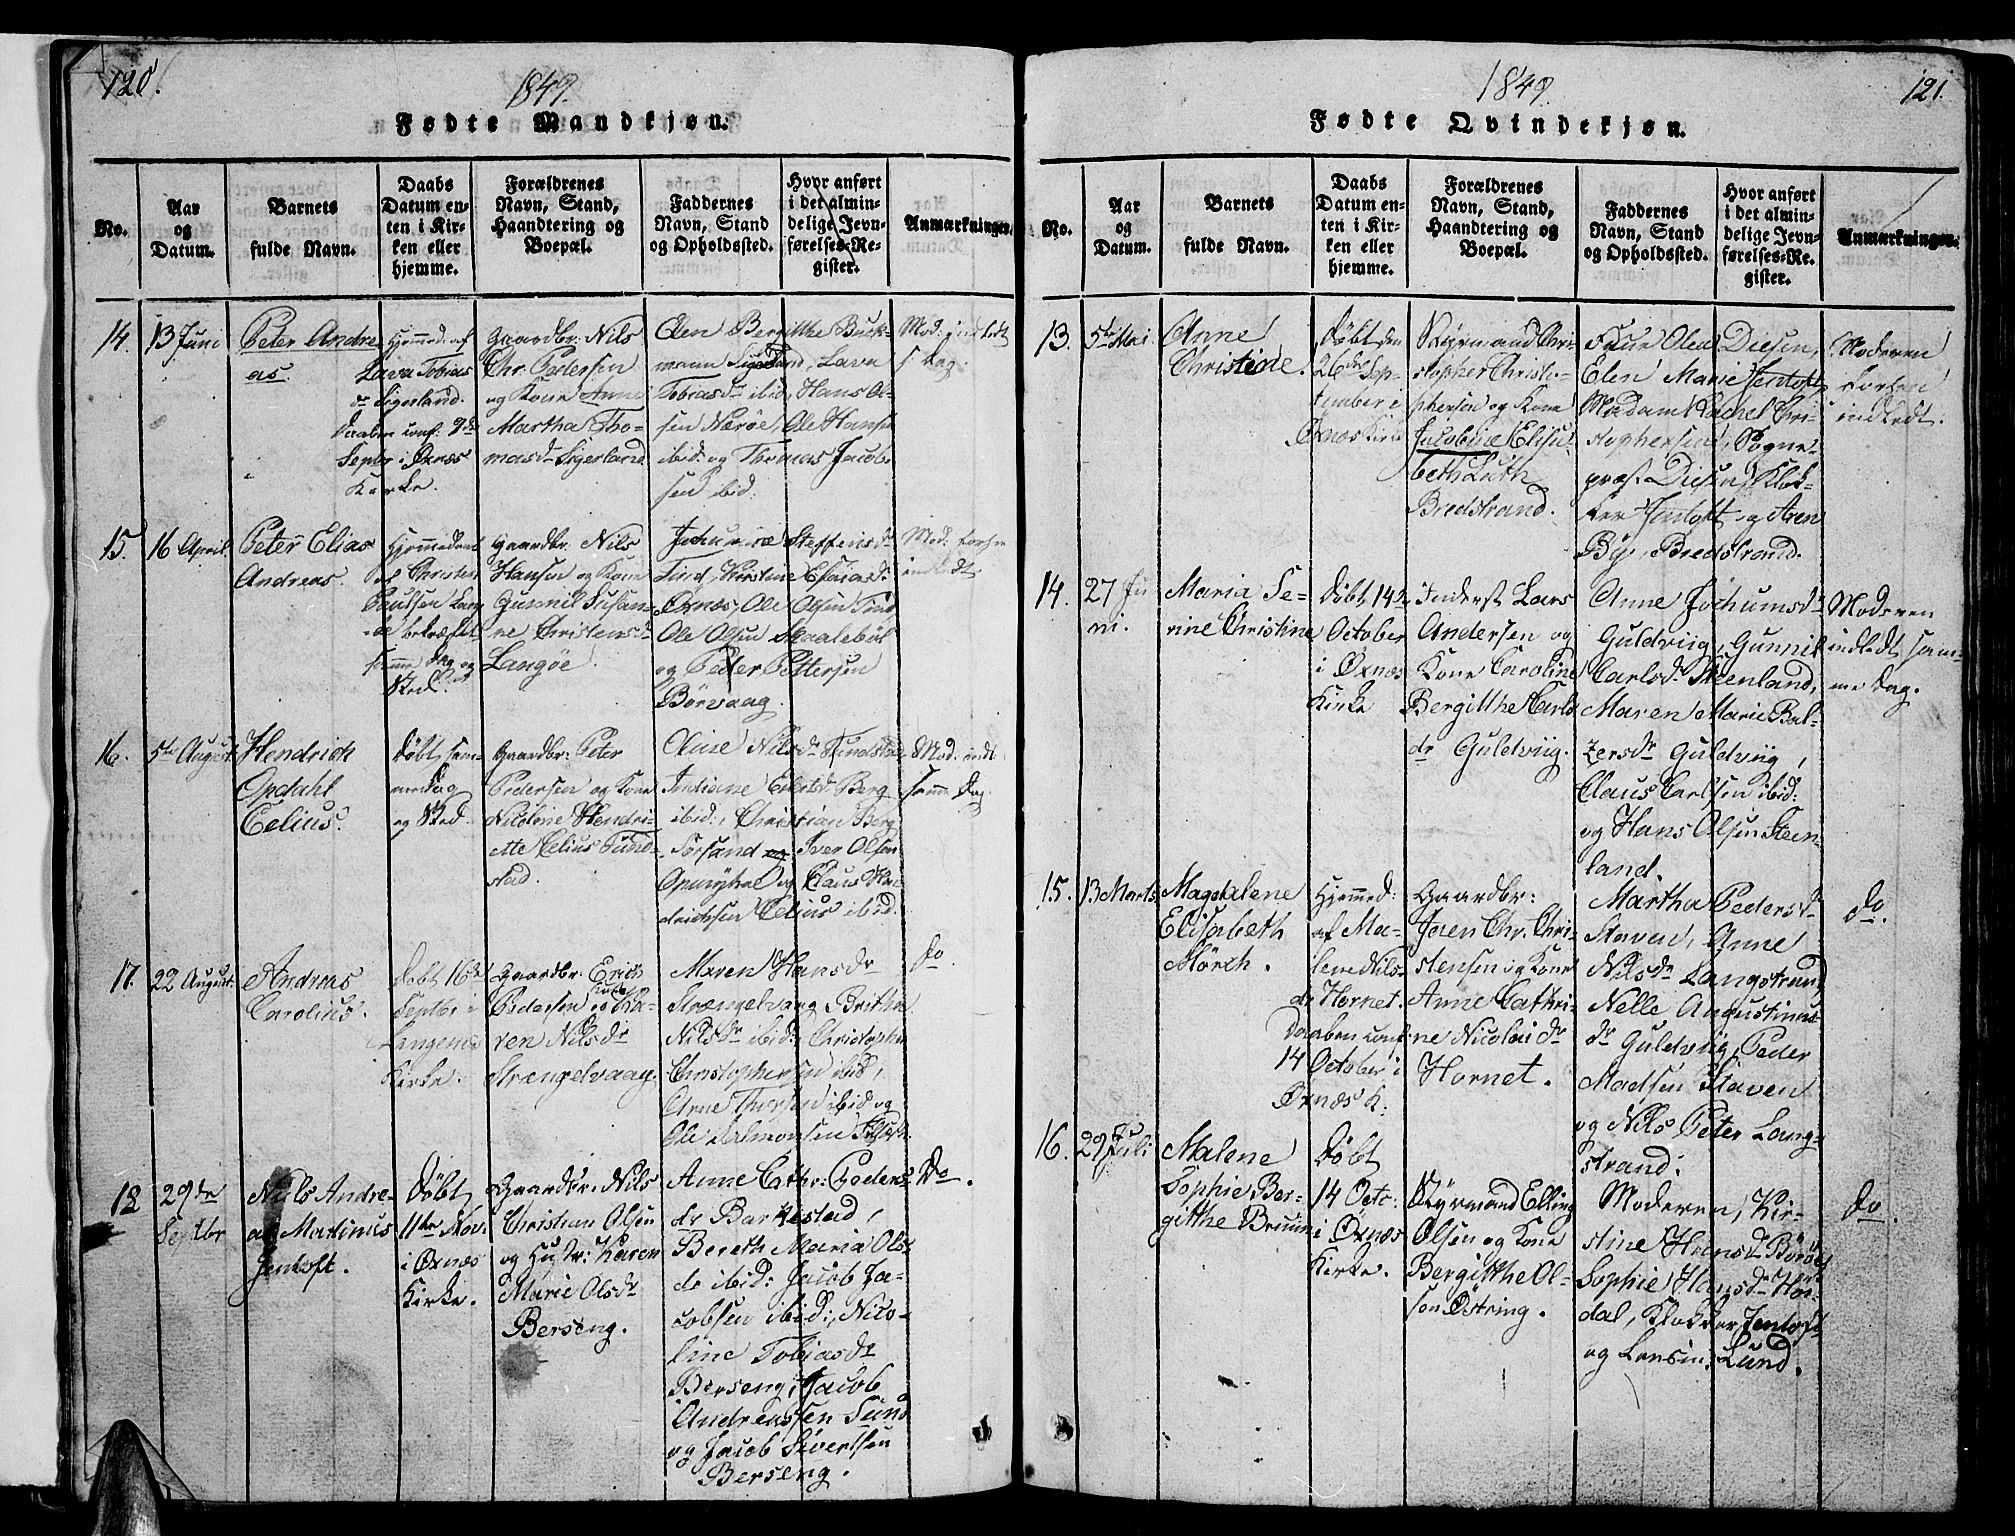 120.
1849.
Fødte Mandkjøn.
No.
Aar
og
Datum.
Barnets
fulde Navn.
Daabs
Datum en-
ten i Kir-
ken eller
hjemme.
Forældrenes
Navn, Stand,
Haandtering og
Boepæl.
Faddernes
Navn, Stand
og Opholdssted.
Hvor anført
i det almin-
delige Jevn-
førelses-Re-
gister.
Anmærkninger.
14.
13 Juni
Peter Andre
as.
Hjemmed: af
Lava Tobias
dr Sigerland.
Daaben conf: 9de
Septbr i Øxnæs
Kirke.
Gaardbr: Nils
Chr. Pedersen
og Kone Anne
Martha Tho-
masdr Sigerland
Elen Bergitthe Busk-
mann Sigerland, Lava
Tobiasdr ibid, Hans Ol-
sen Nærøe, Ole Hansen
ibid: og Thomas Jacob-
sen ibid.
Mod: indledt
s. Dag.
15.
16 April
Peter Elias
Andreas.
Hjemmedøbt
af Christen
Paulsen Lang
øe bekræftet
samme Dag og
Sted.
Gaardbr: Nils
Hansen og Kone
Gunnil Susan-
ne Christensdr
Langøe.
Steffensdr
Tind, Kirstine Esaiasdr
Øxnæs, Ole Olsen Tind
Ole Olsen Skaalebøl
og Peder Pettersen
Børvaag.
Mod: forhen
indledt
16.
5te August
Hendrich
Opdahl
Celius.
Døbt sam-
me Dag
og Sted.
Gaardbr: Peter
Pedersen og Kone
Nicoline Hendri-
ette Celius Tund-
stad.
Oline Nilsdr Tundstad
Indiane Eilertsdr Berg
ibid:, Christian Berg
Torsand og Iver Olsen
og Claus Hen-
drichsen Celius ibid.
Mod: indl.
samme Dag.
17.
22 August
Andreas
Carolius.
Døbt 16de
Septbr i
Langenes
Kirke.
Gaardbr: Erich
Pedersen og Kone Ka-
ren Nilsdr
Strængelvaag.
Maren Hansdr
Strængelvaag, Britha
Nilsdr ibid:, Christopher
Christophersen ibid,
Arne Thorsen ibid og
Ole Salmonsen
Do
18
29de
Septbr
Niels Andre-
as Martinus
Jentoft.
Døbt
11te Nov.
i Øxnæs
Kirke.
Gaardbr: Nils
Christian Olsen
og Hustr: Karen
Marie Olsdr
Berseng.
Anne Cathr: Peders-
dr Barkestad,
Bereth Maria Ols-
dr ibid: Jacob Ja-
cobsen ibid:, Nico-
line Tobiasdr
Berseng, Jacob
Andreassen Sund
og Jacob Sivertsen
Berseng.
Do.
1849.
121.
Fødte Qvindekjøn.
No.
Aar
og
Datum.
Barnets
fulde Navn.
Daabs
Datum en-
ten i Kir-
ken eller
hjemme.
Forældrenes
Navn, Stand,
Haandtering og
Boepæl.
Faddernes
Navn, Stand
og Opholdssted.
Hvor anført
i det almin-
delige Jevn-
førelses-Re-
gister.
Anmærkninger.
13.
5te Mai
Anne
Christine.
Døbt den
26de Sep-
tember i
Øxnæs Kirke
Styrmand Chri-
stopher Christo-
phersen og Kone
Jacobine Elisa-
beth Lüth
Bredstrand.
Frue Olea Diesen,
Elen Marie Jentoft,
Madam Rachel Chri-
stophersen, Sogne-
præst Diesen, Klok-
ker Jentoft og Aren
By, Bredstrand.
Moderen
forhen
indledt.
14.
27 Ju
ni.
Maria Se-
rine Christine
Døbt 14de
October
i Øxnæs
Kirke
Inderst Lars
Andersen og
Kone Caroline
Bergitthe Carls
dr Guldviig.
Anne Jochumsdr
Guldviig, Gunnil
Carlsdr Steenland,
Maren Marie Bal-
zersdr Guldviig,
Claus Carlsen ibid:
og Hans Olsen Steen-
land.
Moderen
indledt sam-
me Dag.
15.
13 Marts
Magdalene
Elisabeth
Mörch.
Hjemmed:
af Ma-
lene Nils-
dr Hornet.
Daaben conf:
14 October i
Øxnæs K:
Gaardbr:
Joen Chr. Chri-
stensen og Kone
Anne Cathri-
ne Nicolaidr
Hornet.
Martha Pedersdr
Staven, Anne
Nilsdr Langstrand,
Nelle Augustinus-
dr Guldviig, Peder
Madsen Staven
og Nils Peter Lang-
strand.
Do.
16.
29 Juli
Malene
Sophie Ber-
gitthe Bruun
Døbt
14 Octo:
i Øxnæs
Kirke.
Styrmand Elling
Olsen og Kone
Bergitthe Ol-
sen Østring.
Moderen, Kir-
stine Hansdr Börøe,
Sophie Hansdr Hör-
dal, Klokker Jentoft
og Lund.
Do.